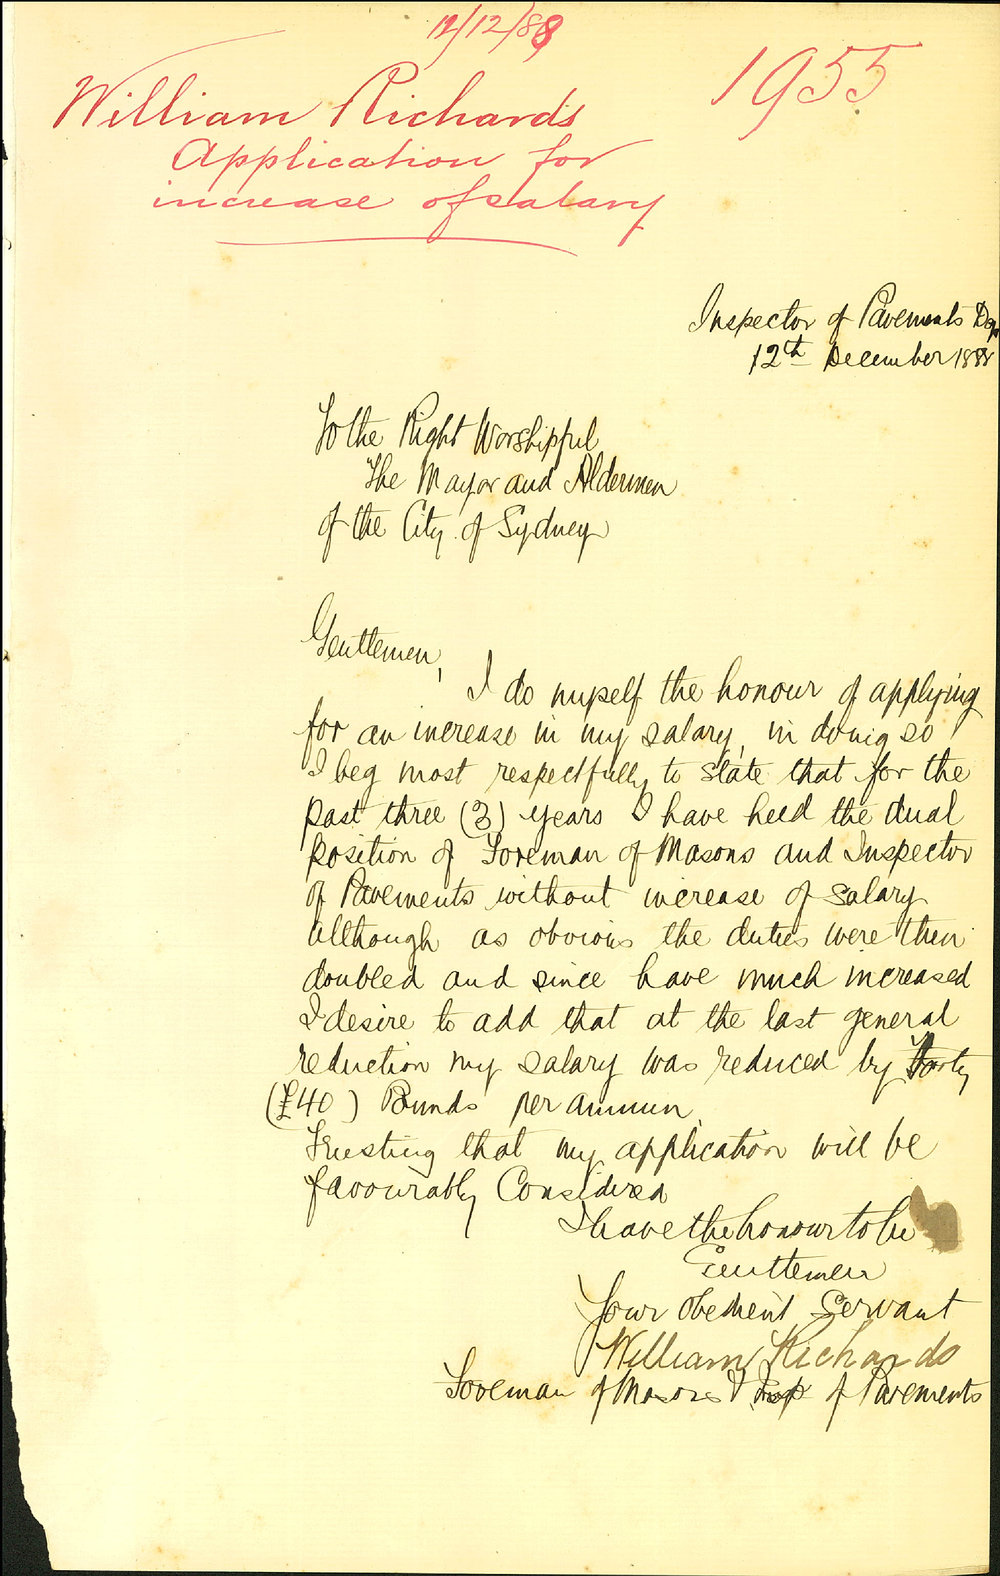 12/12/88
1955
William Richards
Application for
increase of salary
Inspector of Pavements Dep
12th December 1888
To the Right Worshipful
The Mayor and Aldermen
of the City of Sydney
Gentlemen,
I do myself the honour of applying
for an increase in my salary, in doing so
I beg most respectfully to state that for the
past three (3) years I have held the dual
position of Foreman of Masons and Inspector
of Pavements without increase of salary
although as obvious the duties were then
doubled and since have much increased
I desire to add that at the last general
reduction my salary was reduced by Forty
(£40) Pounds per annum.
Trusting that my application will be
favourably Considered
I have the honour to be
Gentlemen
Your obedient Servant
William Richards
Foreman of Masons & Insp of Pavements